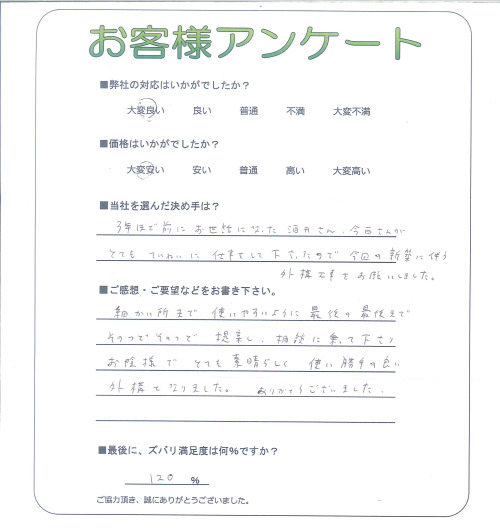 お客様アンケート
■弊社の対応はいかがでしたか？
大変良い 良い 普通 不満 大変不満
■価格はいかがでしたか？
大変安い 安い 普通 高い 大変高い
■当社を選んだ決め手は？
3年ほど前に お世話になった 酒井さん、今田さんが
とても ていねいに 仕事をして下さったので 今回の新築に伴う
外構工事をお願いしました。
■ご感想・ご要望などをお書き下さい。
細かい所まで 使いやすいように 最後の最後まで
そのつどそのつど 提案し、相談に乗って下さり
お陰様で とても素晴らしく 使い勝手の良い
外構となりました。 ありがとうございました。
■最後に、ズバリ満足度は何%ですか？
120 %
ご協力頂き、誠にありがとうございました。